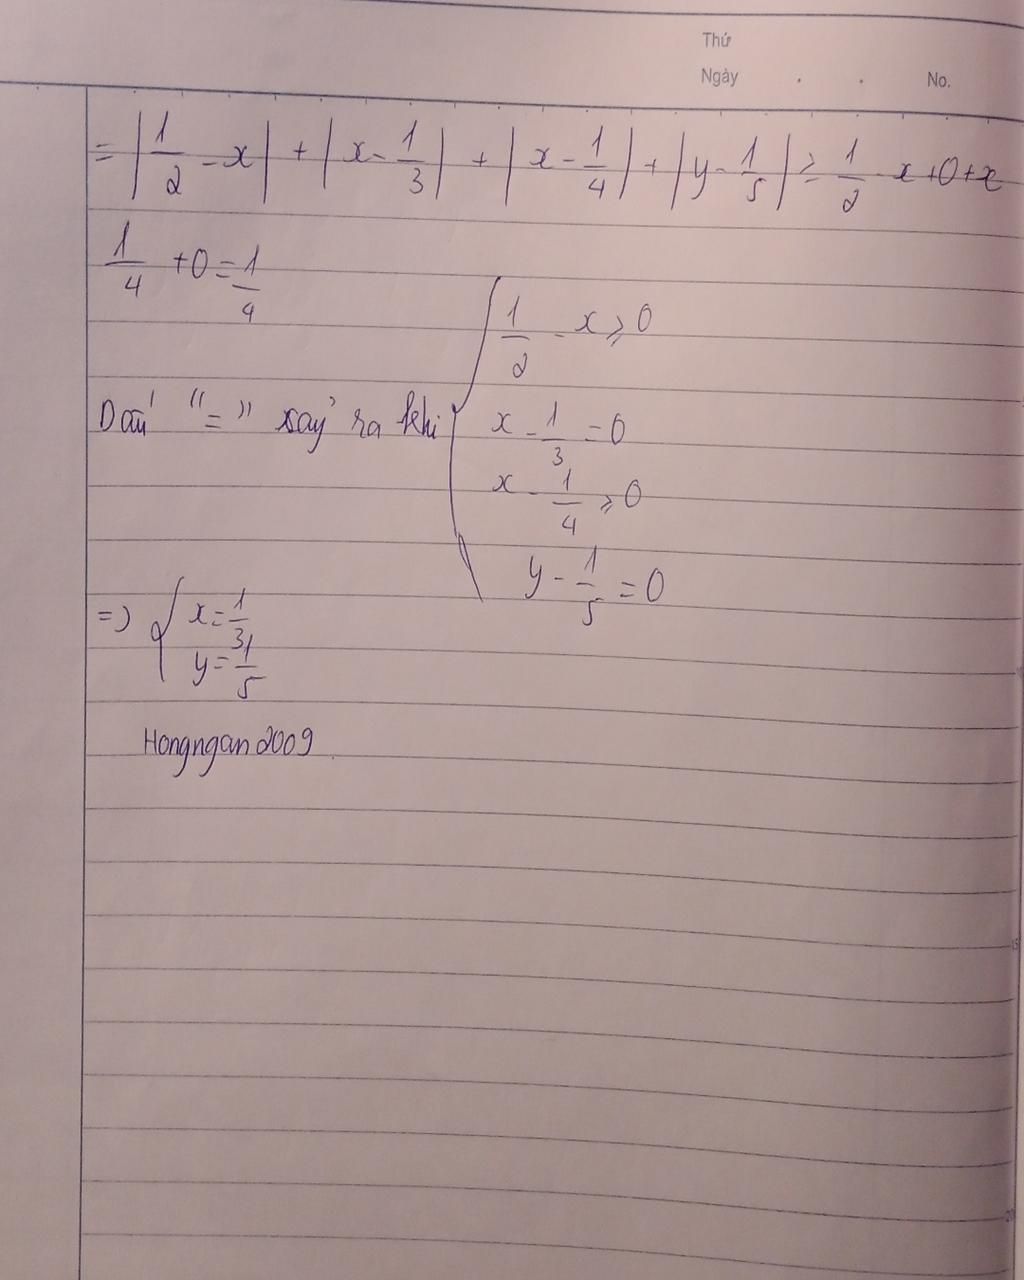 Thứ
Ngày . . No.
= |1/2 - x| + |x - 1/3| + |x - 1/4| + |y - 1/5| ≥ 1/2 - x + 0 + x
1/4 + 0 = 1/4
1/2 - x ≥ 0
Dấu "=" xảy ra khi { x - 1/3 = 0
x - 1/4 ≥ 0
y - 1/5 = 0
=> { x = 1/3
y = 1/5
Hongngan2009